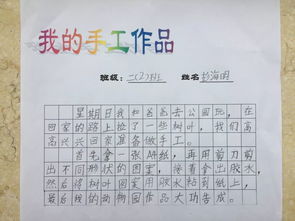 我的手工作品
班级:二(2)班 姓名:杉海明
星期日我和爸爸去公园玩,在
回家的路上捡了一些树叶,我们高
高兴兴回家准备做手工。
首先拿一张A4纸,再用剪刀剪
出不同形状的图案,接着拿出胶水,
然后将树叶图案用胶水粘到纸上,
最后我的动物园作品大功告成。